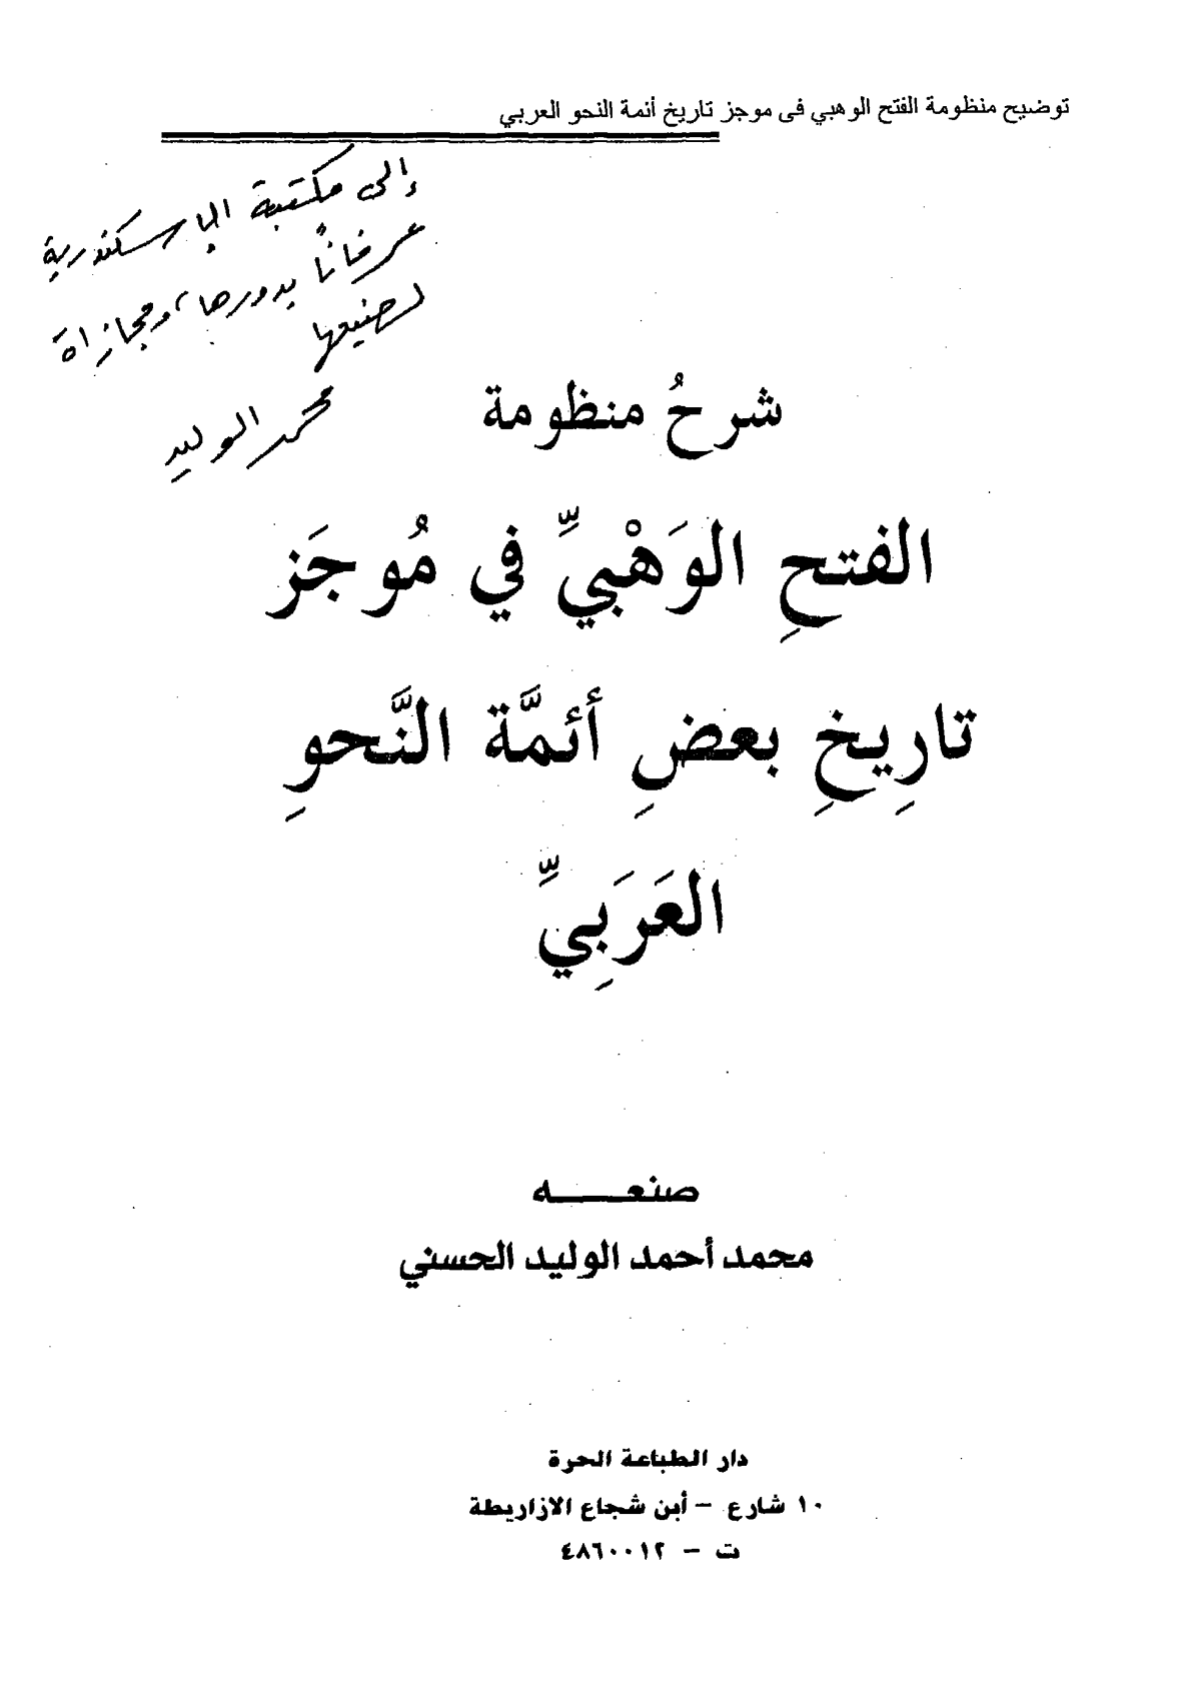 توضيح منظومة الفتح الوهبي فى موجز تاريخ أئمة النحو العربي
إلى مكتبة الإسكندرية
عرفانًا بدورها، ومجازاة
لصنيعها
محمد الوليد
شرحُ منظومة
الفتحِ الوَهْبيِّ في مُوجَز
تارِيخِ بعضِ أئمَّة النَّحوِ
العَرَبِيِّ
صنعـــــه
محمد أحمد الوليد الحسني
دار الطباعة الحرة
١٠ شارع – أبن شجاع الازاريطة
ت – ٤٨٦٠٠١٢